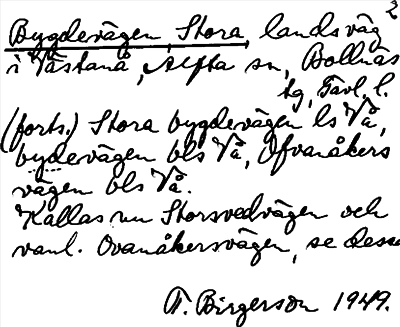 Bygdevägen, Stora, landsväg 2
i Västanå, Alfta sn, Bollnäs
tg, Gävl. l.
(forts.) Stora bygdevägen ls Vå,
bydevägen bls Vå, Ofvanåkers
vägen bls Vå.
Kallas nu Storsvedvägen och
vanl. Ovanåkersvägen, se dessa
T. Birgerson 1949.